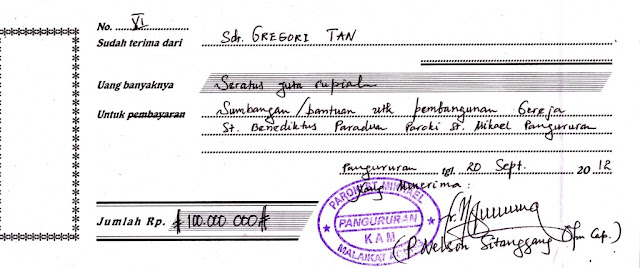 No. VI
Sudah terima dari Sdr. GREGORI TAN
Uang banyaknya Seratus juta rupiah
Untuk pembayaran Sumbangan/bantuan utk pembangunan Gereja
St. Benediktus Paradua Paroki St. Mikael Pangururan
Pangururan tgl. 20 Sept. 2012
Yang Menerima :
PAROKI ST. MIKAEL
PANGURURAN
KAM
MALAIKAT
Jumlah Rp. #100.000.000#
(P. Nelson Sitanggang Ofm Cap.)